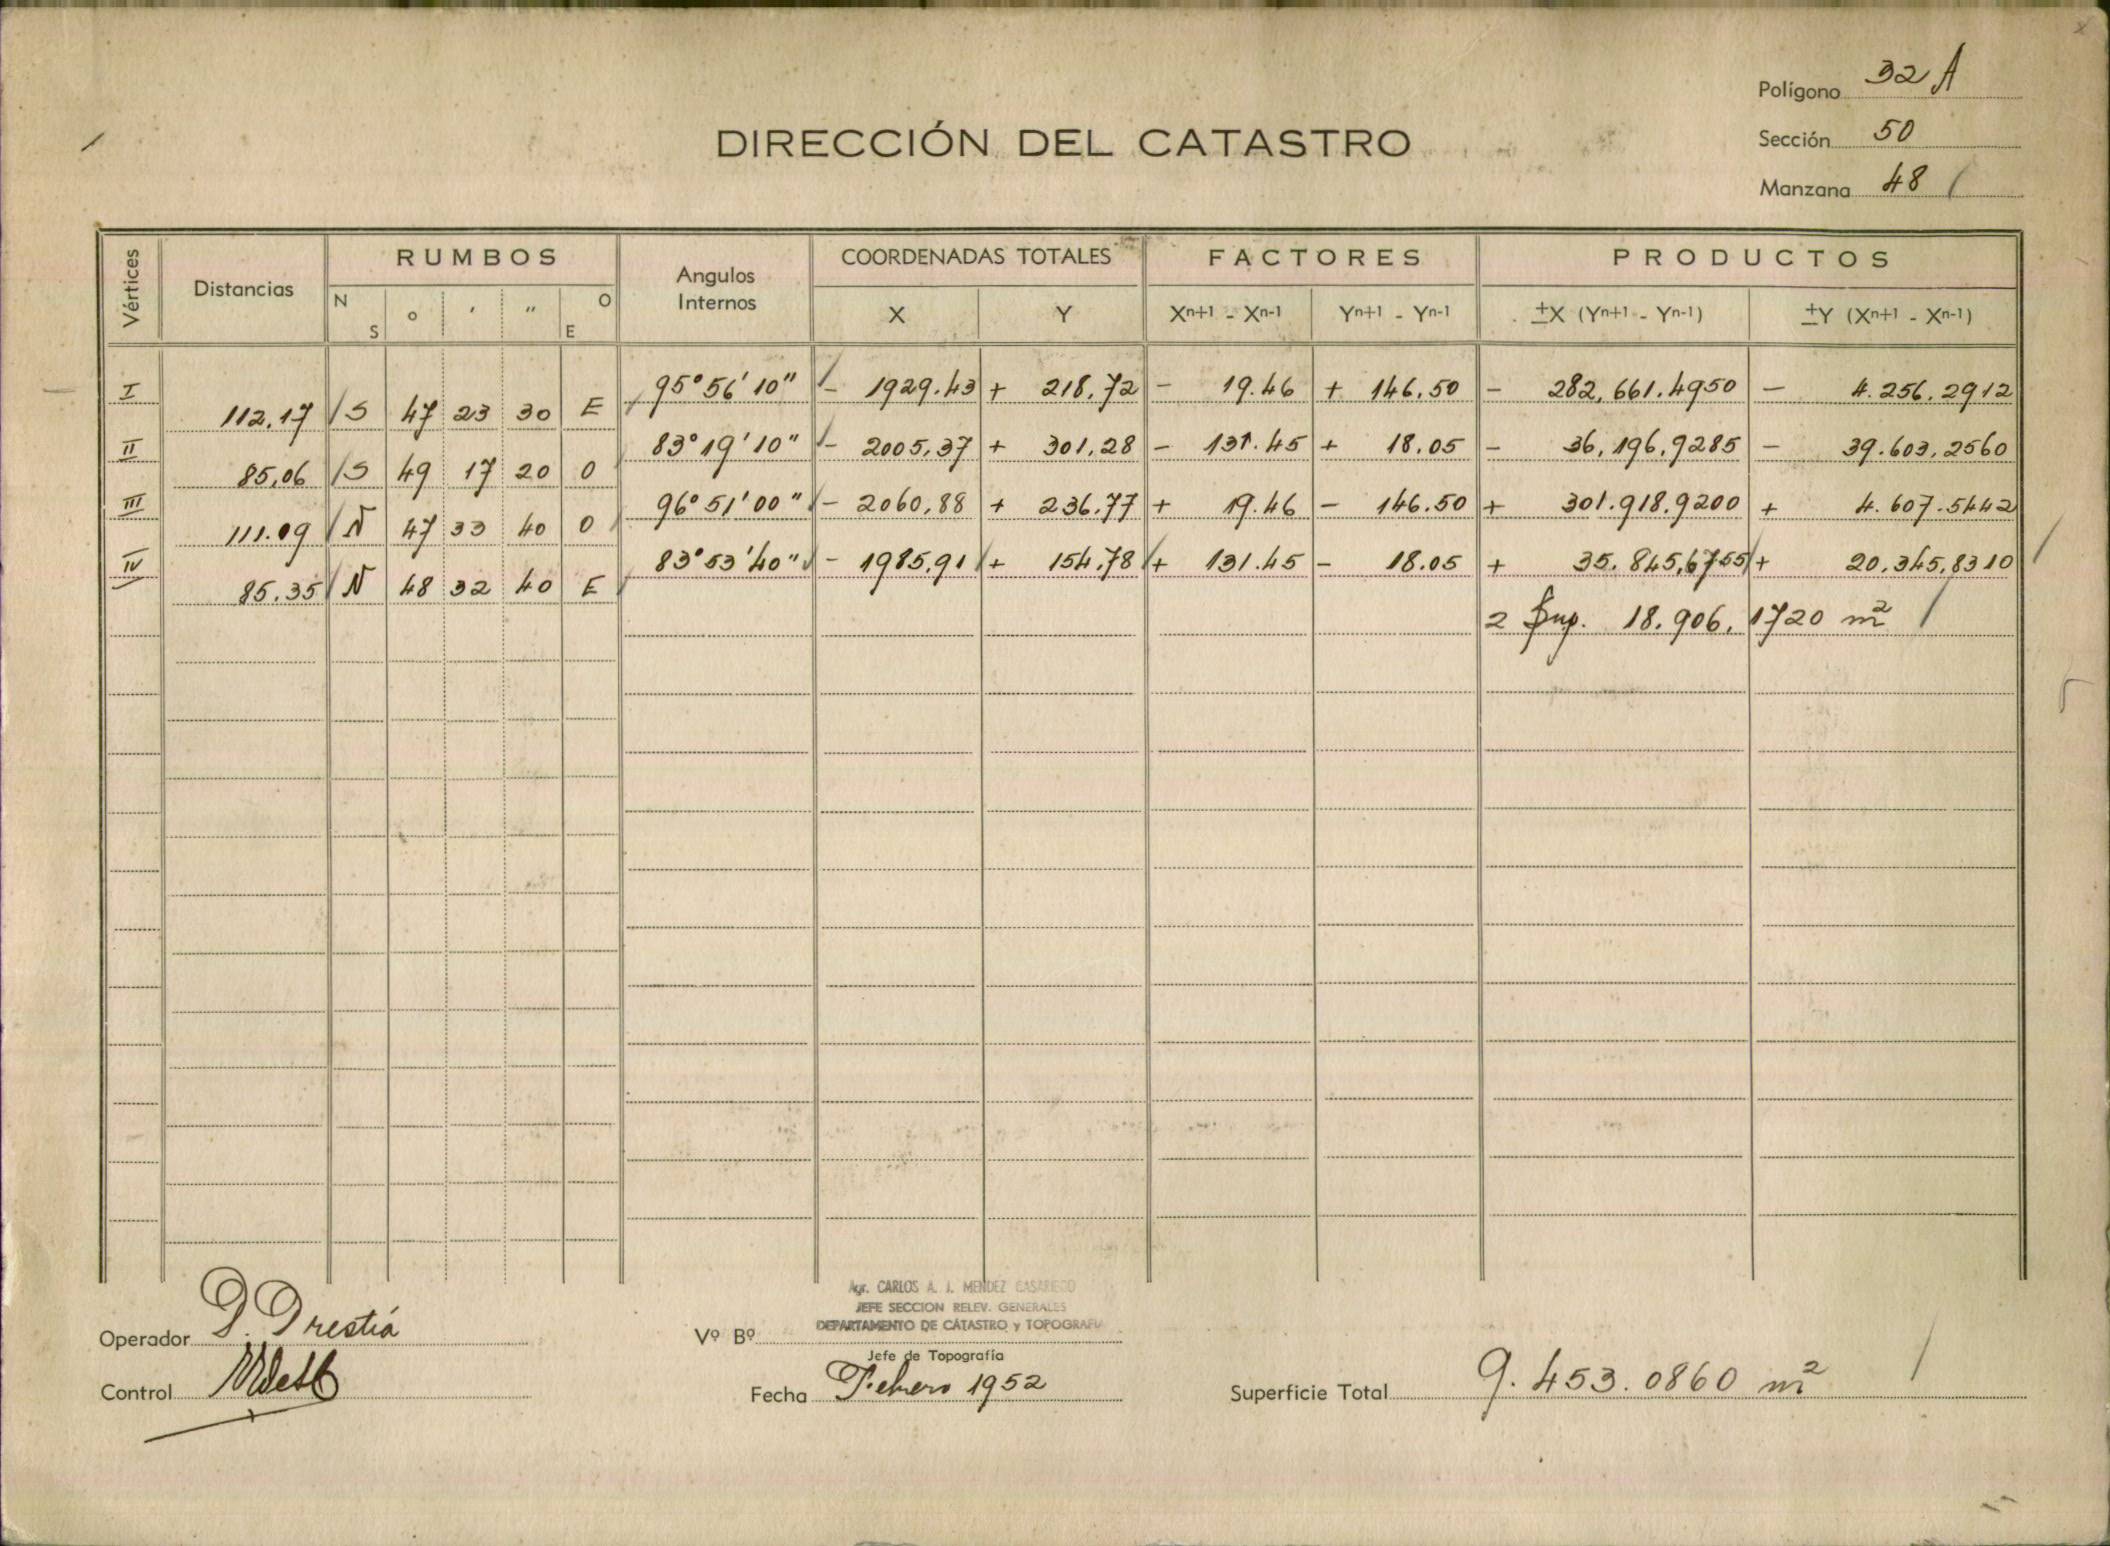 Polígono 32 A
DIRECCIÓN DEL CATASTRO
Sección 50
Manzana 48
Vértices Distancias RUMBOS Angulos Internos COORDENADAS TOTALES FACTORES PRODUCTOS
N S o ' " O E X Y Xn+1 - Xn-1 Yn+1 - Yn-1 ±X (Yn+1 - Yn-1) ±Y (Xn+1 - Xn-1)
I 95° 56' 10" - 1929.43 + 218,72 - 19.46 + 146,50 - 282,661.4950 - 4.256.2912
112,17 S 47 23 30 E
II 83° 19' 10" - 2005,37 + 301,28 - 131.45 + 18.05 - 36,196,9285 - 39.603,2560
85,06 S 49 17 20 O
III 96° 51' 00" - 2060,88 + 236,77 + 19.46 - 146.50 + 301.918,9200 + 4.607.5442
111.09 N 47 33 40 O
IV 83° 53' 40" - 1985,91 + 154,78 + 131.45 - 18.05 + 35.845,6755 + 20.345,8310
85.35 N 48 32 40 E
2 Sup. 18.906,1720 m²
Agr. CARLOS A. J. MENDEZ CASARIEGO
JEFE SECCION RELEV. GENERALES
DEPARTAMENTO DE CATASTRO y TOPOGRAFIA
Operador D. Drestiá
Vº Bº
Jefe de Topografía
Control
Fecha Febrero 1952
Superficie Total 9.453.0860 m²